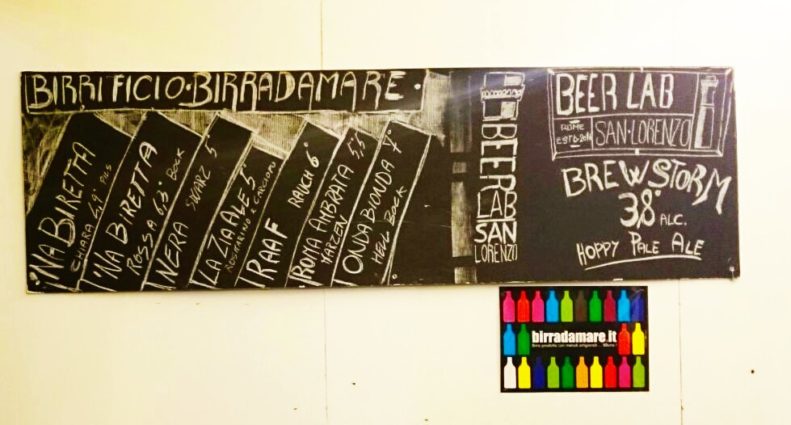 BIRRIFICIO · BIRRADAMARE ·
'NA BIRETTA
CHIARA 4,9° PILS
'NA BIRETTA
ROSSA 6,3° BOCK
NERA SWARZ 5°
LA ZIA ALE 5°
ROSMARINO E CARCIOFO
RAAF RAUCH 6°
ROMA AMBRATA 5,5
MARZEN
ONDA BIONDA 7°
HELL BOCK
BEER
LAB
SAN
LORENZO
BEER LAB
ROME
ESTD 2014
SAN·LORENZO
BREWSTORM
3,8° ALC.
HOPPY PALE ALE
birradamare.it